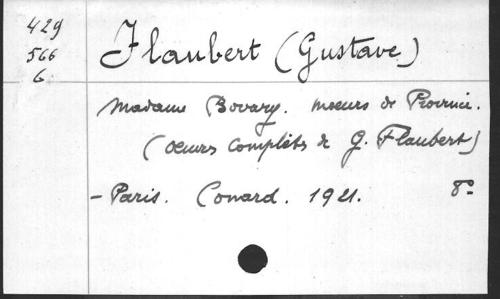 429
566
6
Flaubert (Gustave)
Madame Bovary. moeurs de Province.
(Oeuvres complètes de G. Flaubert)
- Paris. Conard. 1921. 8°